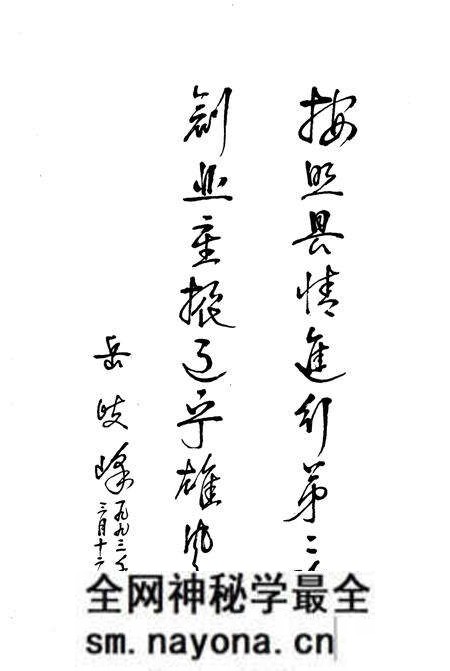 按照县情进行第二
创业重振辽宁雄风
岳岐峰
一九九三年
三月十二
全网神秘学最全
sm.nayona.cn